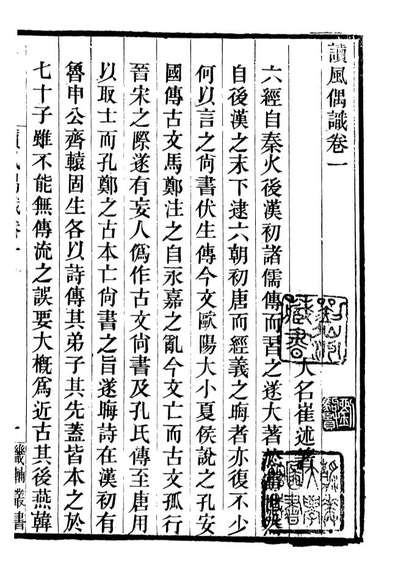 讀風偶識卷一
大名崔述著
六經自秦火後漢初諸儒傳而習之遂大著於
自後漢之末下逮六朝初唐而經義之晦者亦復不少
何以言之尚書伏生傳今文歐陽大小夏侯說之孔安
國傳古文馬鄭注之自永嘉之亂今文亡而古文孤行
晉宋之際遂有妄人僞作古文尚書及孔氏傳至唐用
以取士而孔鄭之古本亡尚書之旨遂晦詩在漢初有
魯申公齊轅固生各以詩傳其弟子其先蓋皆本之於
七十子雖不能無傳流之誤要大概爲近古其後燕韓
讀風偶識卷一
一
畿輔叢書